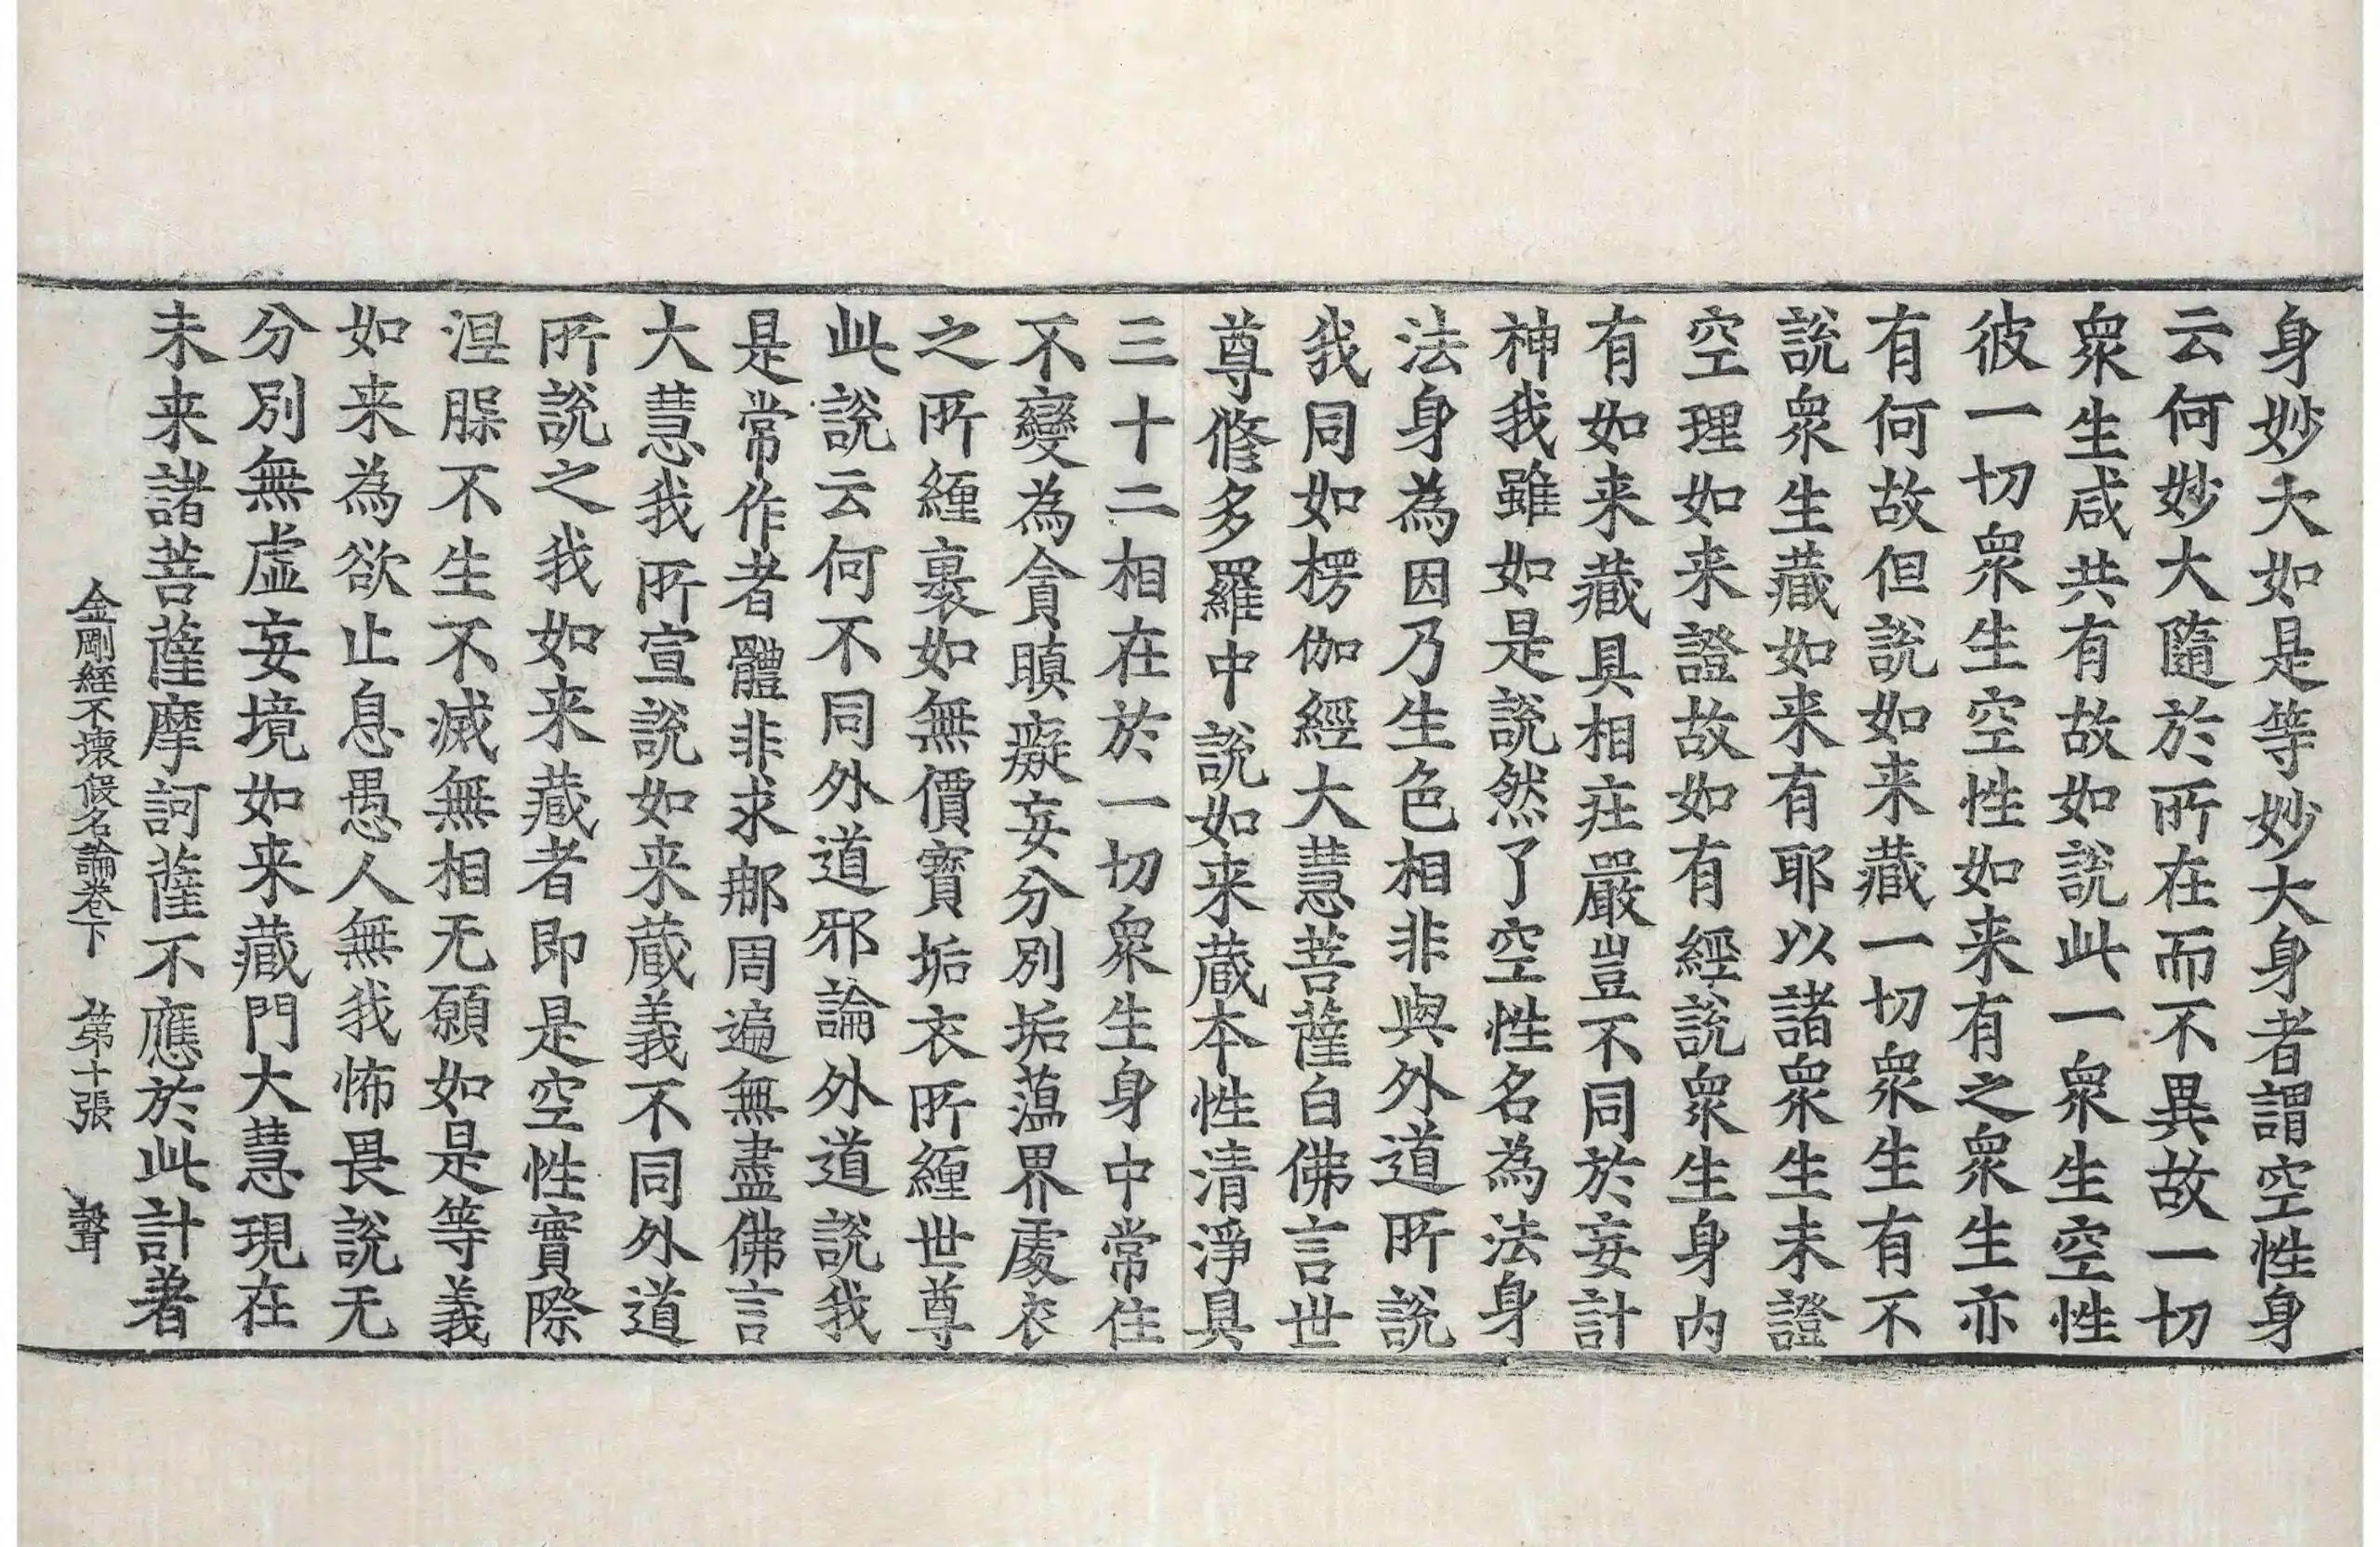 身妙大如是等妙大身者謂空性身
云何妙大隨於所在而不異故一切
衆生咸共有故如說此一衆生空性
彼一切衆生空性如来有之衆生亦
有何故但說如来藏一切衆生有不
說衆生藏如来有耶以諸衆生未證
空理如来證故如有經說衆生身内
有如来藏具相莊嚴豈不同於妄計
神我雖如是說然了空性名為法身
法身為因乃生色相非與外道所說
我同如楞伽經大慧菩薩白佛言世
尊脩多羅中說如来蔵本性清淨具
三十二相在於一切衆生身中常住
不變為貪瞋癡妄分別垢薀界處衣
之所纏裹如無價寶垢衣所纏世尊
此說云何不同外道邪論外道說我
是常作者體非求那周遍無盡佛言
大慧我所宣說如来蔵義不同外道
所說之我如来藏者即是空性實際
涅槃不生不滅無相无願如是等義
如来為欲止息愚人無我怖畏說无
分別無虚妄境如来藏門大慧現在
未来諸菩薩摩訶薩不應於此計著
金剛經不壞假名論卷下 第十張 聲